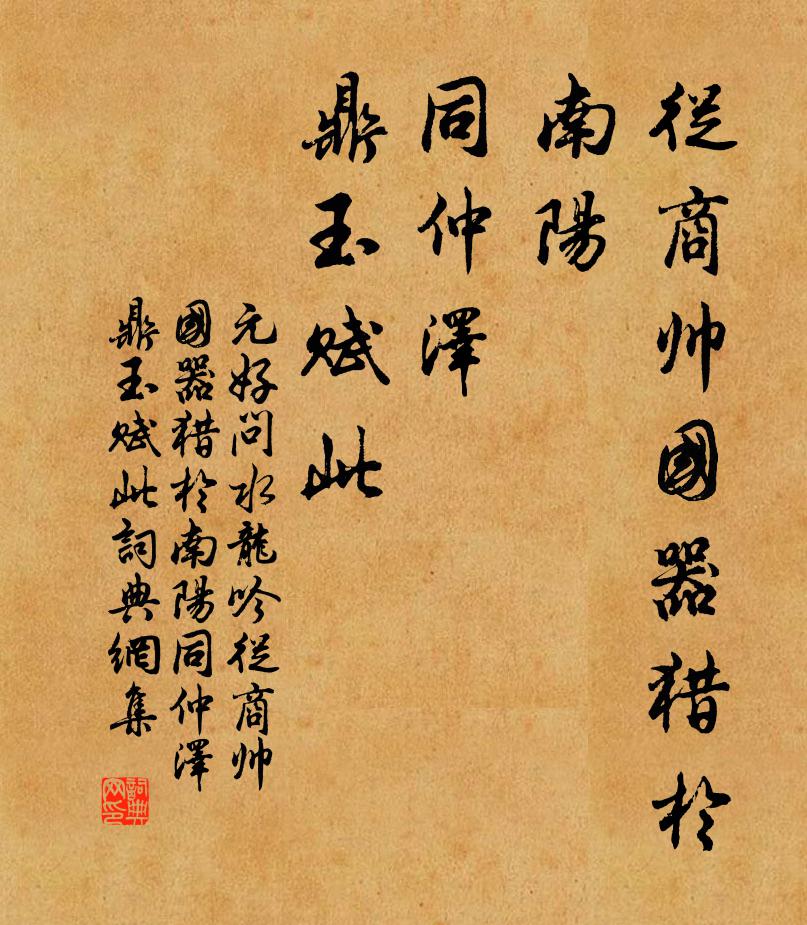 從商帅國器猎於
南陽
同仲澤
鼎玉赋此
元好问水龍吟從商帅
國器猎於南陽同仲澤
鼎玉赋此詞典網集
詞典
网印